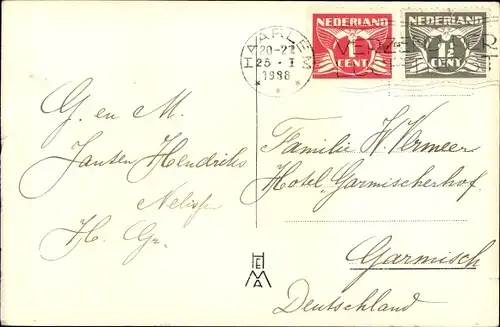 NEDERLAND
1
CENT
NEDERLAND
1½
CENT
HAARLEM
20-22
25 · I
1938
G. en M.
Jansen Hendriks
H. Gr.
Familie W. Vermeer
Hotel "Garmischerhof.
Garmisch
Deutschland
HEMA